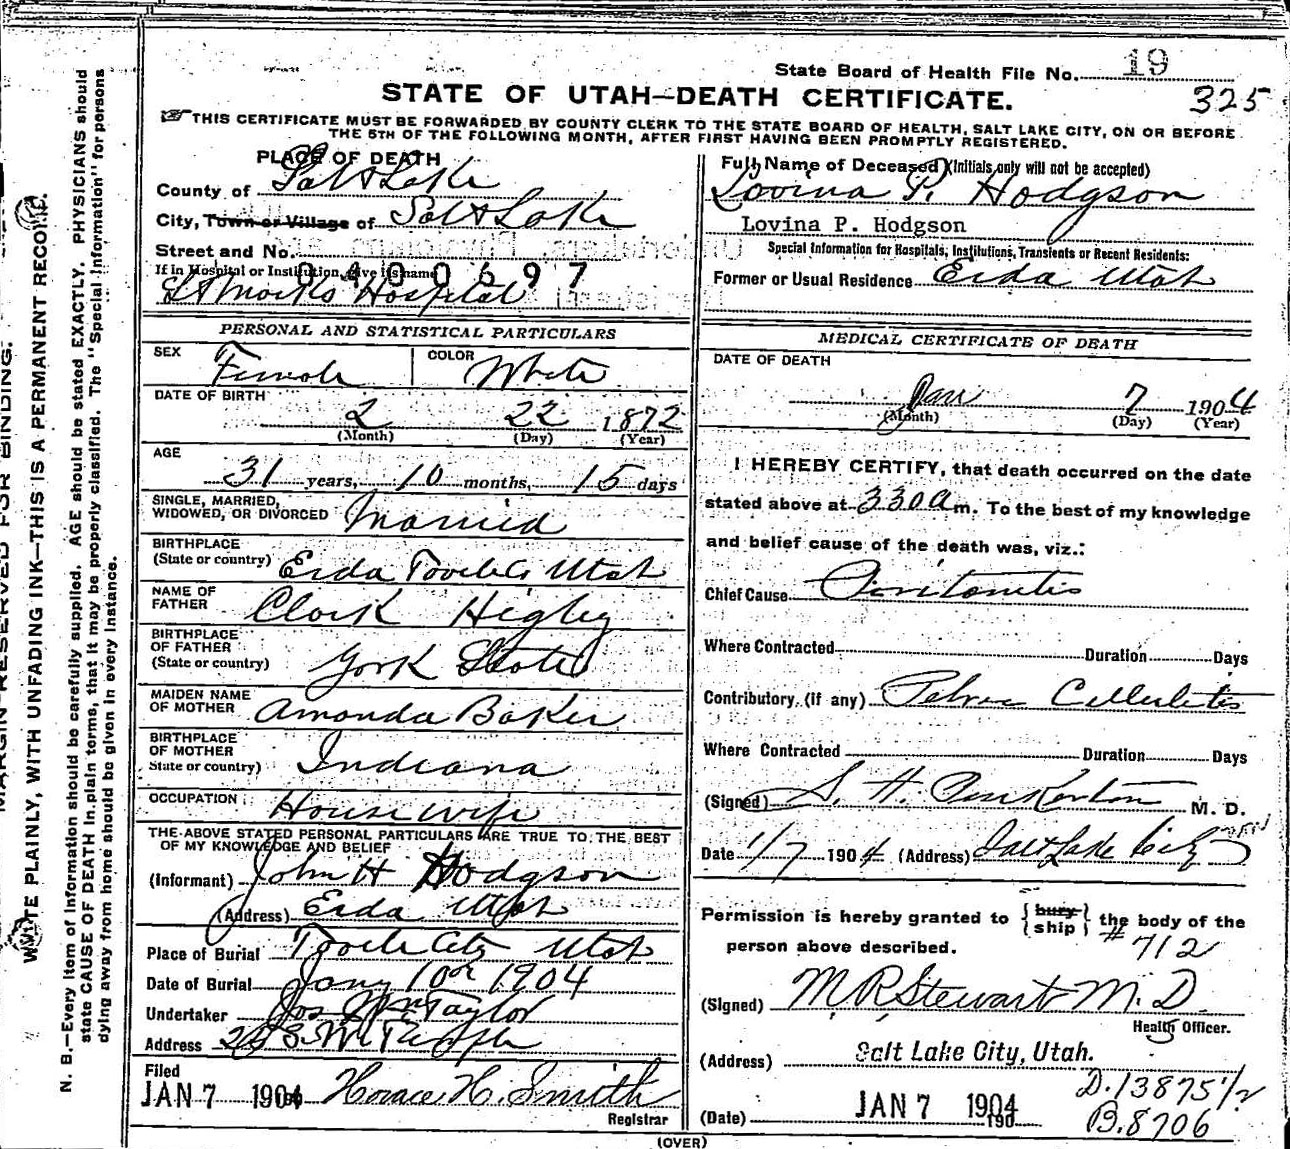 State Board of Health File No. 19
325
STATE OF UTAH—DEATH CERTIFICATE.
THIS CERTIFICATE MUST BE FORWARDED BY COUNTY CLERK TO THE STATE BOARD OF HEALTH, SALT LAKE CITY, ON OR BEFORE
THE 5TH OF THE FOLLOWING MONTH, AFTER FIRST HAVING BEEN PROMPTLY REGISTERED.
PLACE OF DEATH
County of Salt Lake
City, Town or Village of Salt Lake
Street and No.
If in Hospital or Institution, give its name
0400697
St Marks Hospital
Full Name of Deceased (Initials only will not be accepted)
Lovina P. Hodgson
Lovina P. Hodgson
Special Information for Hospitals, Institutions, Transients or Recent Residents:
Former or Usual Residence Erda Utah
PERSONAL AND STATISTICAL PARTICULARS
SEX Female COLOR White
DATE OF BIRTH
2 22 1872
(Month) (Day) (Year)
AGE
31 years, 10 months, 15 days
SINGLE, MARRIED,
WIDOWED, OR DIVORCED Married
BIRTHPLACE
(State or country) Erda Tooele Co Utah
NAME OF
FATHER Clark Higley
BIRTHPLACE
OF FATHER
(State or country) York State
MAIDEN NAME
OF MOTHER Amanda Baker
BIRTHPLACE
OF MOTHER
State or country) Indiana
OCCUPATION Housewife
THE ABOVE STATED PERSONAL PARTICULARS ARE TRUE TO THE BEST
OF MY KNOWLEDGE AND BELIEF
(Informant) John H Hodgson
(Address) Erda Utah
Place of Burial Tooele City Utah
Date of Burial Jany 10th 1904
Undertaker Jos Wm Taylor
Address
Filed
JAN 7 1904 Horace H. Smith
Registrar
MEDICAL CERTIFICATE OF DEATH
DATE OF DEATH
Jan 7 1904
(Month) (Day) (Year)
I HEREBY CERTIFY, that death occurred on the date
stated above at 330 a m. To the best of my knowledge
and belief cause of the death was, viz.:
Chief Cause Peritonitis
Where Contracted Duration Days
Contributory (if any) Pelvic Cellulitis
Where Contracted Duration Days
(Signed) S. H. Pinkerton M. D.
Date 1/7 1904 (Address) Salt Lake City
Permission is hereby granted to {bury ship} the body of the
person above described. # 712
(Signed) M R Stewart M. D.
Health Officer.
(Address) Salt Lake City, Utah.
D. 13875 1/2
(Date) JAN 7 1904
190
B. 8706
(OVER)
MARGIN RESERVED FOR BINDING.
WRITE PLAINLY, WITH UNFADING INK—THIS IS A PERMANENT RECORD.
N. B.—Every item of information should be carefully supplied. AGE should be stated EXACTLY. PHYSICIANS should
state CAUSE OF DEATH in plain terms, that it may be properly classified. The "Special Information" for persons
dying away from home should be given in every instance.